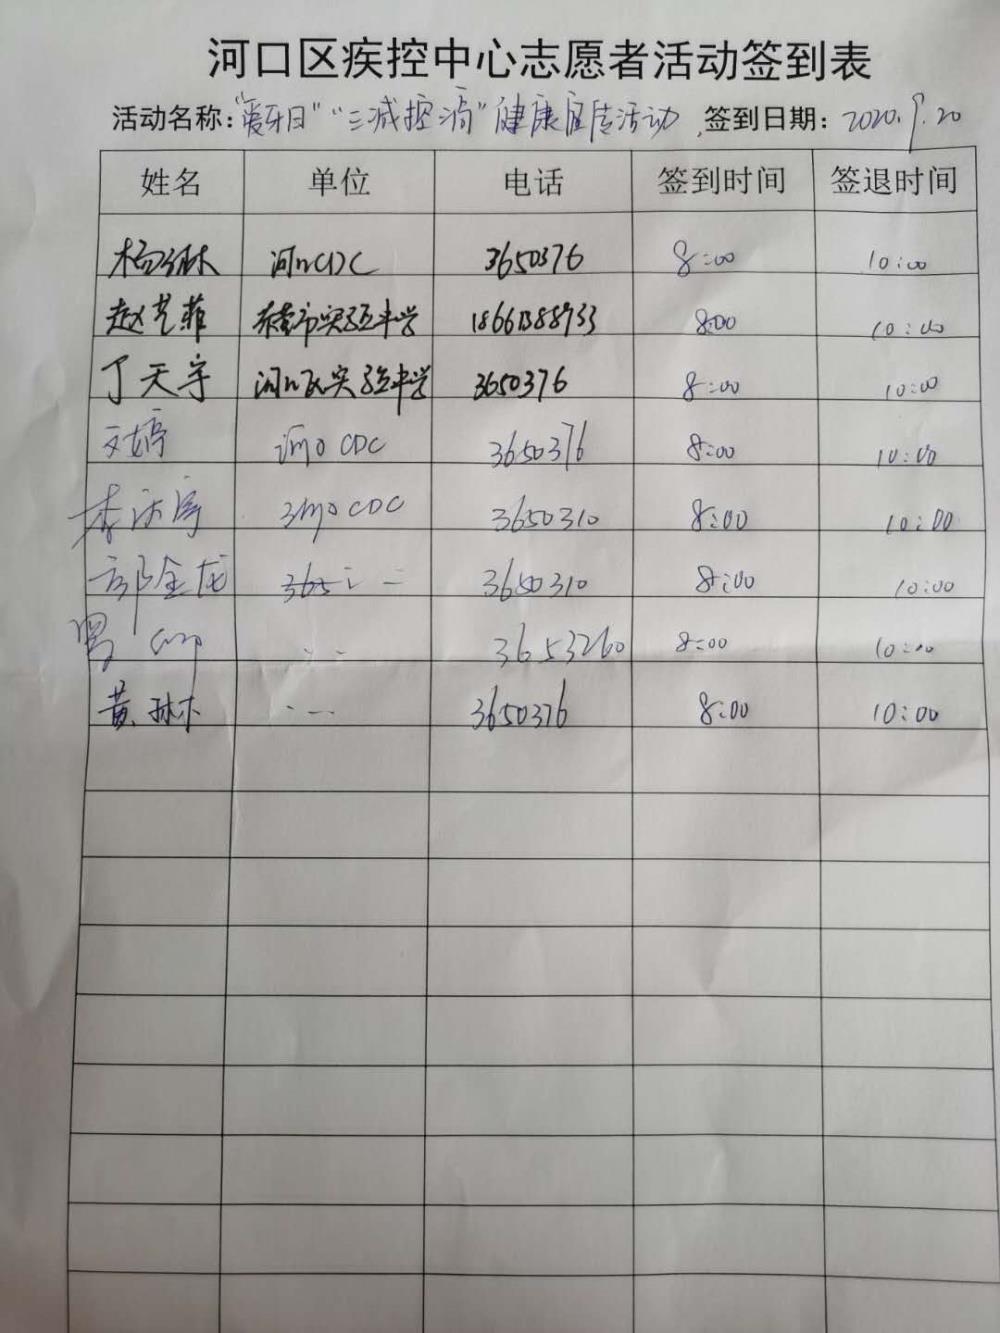 河口区疾控中心志愿者活动签到表
活动名称："爱牙日""三减控酒"健康宣传活动 签到日期：2020.9.20
姓名 单位 电话 签到时间 签退时间
杨 林 河口CDC 3650376 8:00 10:00
赵艺菲 东营市实验中学 18661388933 8:00 10:00
丁天宇 河口区实验中学 3650376 8:00 10:00
婷 河口CDC 3650376 8:00 10:00
李 河口CDC 3650310 8:00 10:00
郭金龙 3650310 8:00 10:00
3653260 8:00 10:00
黄琳 3650376 8:00 10:00